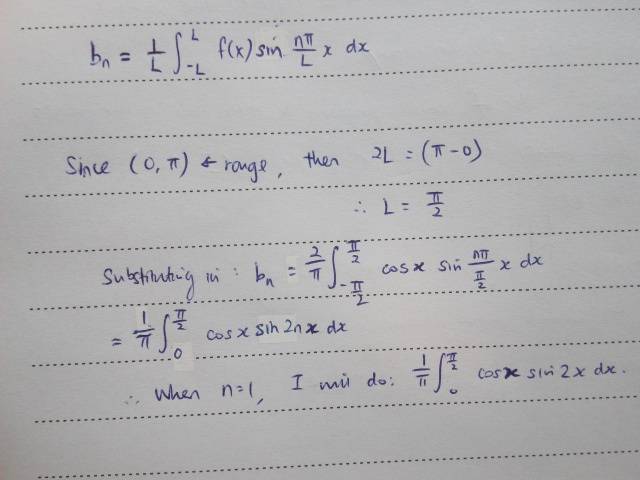 bₙ = 1/L ∫_{-L}^{L} f(x) sin nπ/L x dx
Since (0, π) ← range, then 2L = (π - 0)
∴ L = π/2
Substituting in : bₙ = 2/π ∫_{-π/2}^{π/2} cos x sin nπ/(π/2) x dx
= 1/π ∫_{0}^{π/2} cos x sin 2n x dx
∴ When n=1, I will do: 1/π ∫_{0}^{π/2} cos x sin 2 x dx.